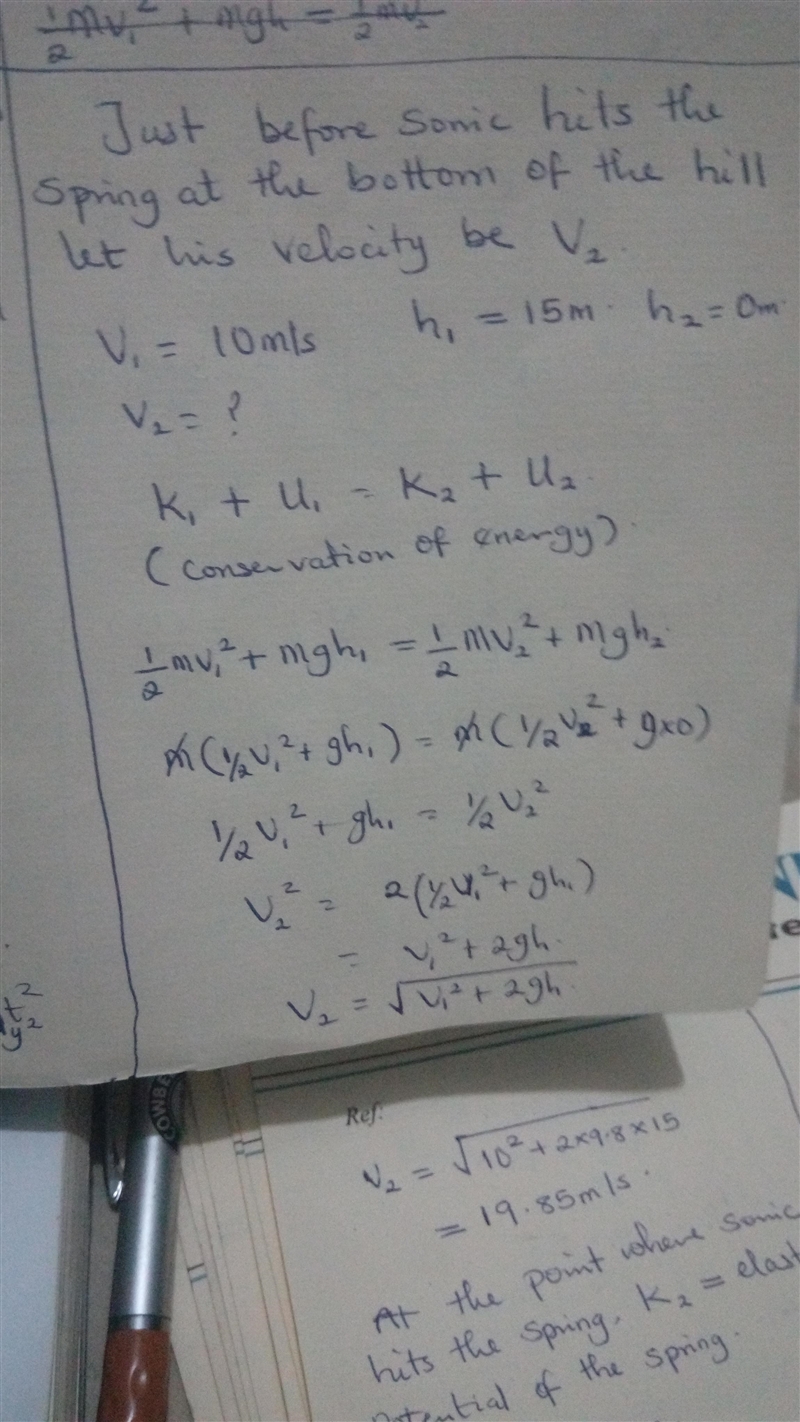 1/2 mv₁² + mgh = 1/2 mv₂
Just before Sonic hits the
spring at the bottom of the hill
let his velocity be V₂.
V₁ = 10m/s h₁ = 15m. h₂ = 0m.
V₂ = ?
K₁ + U₁ = K₂ + U₂.
(conservation of energy).
1/2 mv₁² + mgh₁ = 1/2 mv₂² + mgh₂.
m(1/2 v₁² + gh₁) = m(1/2 v₂² + g×0)
1/2 v₁² + gh₁ = 1/2 v₂²
V₂² = 2(1/2 v₁² + gh₁)
= v₁² + 2gh.
V₂ = √v₁² + 2gh.
t²
y2
OWBE
Ref:
V₂ = √10² + 2×9.8×15
= 19.85m/s.
At the point where sonic
hits the spring, K₂ = elast
potential of the spring.